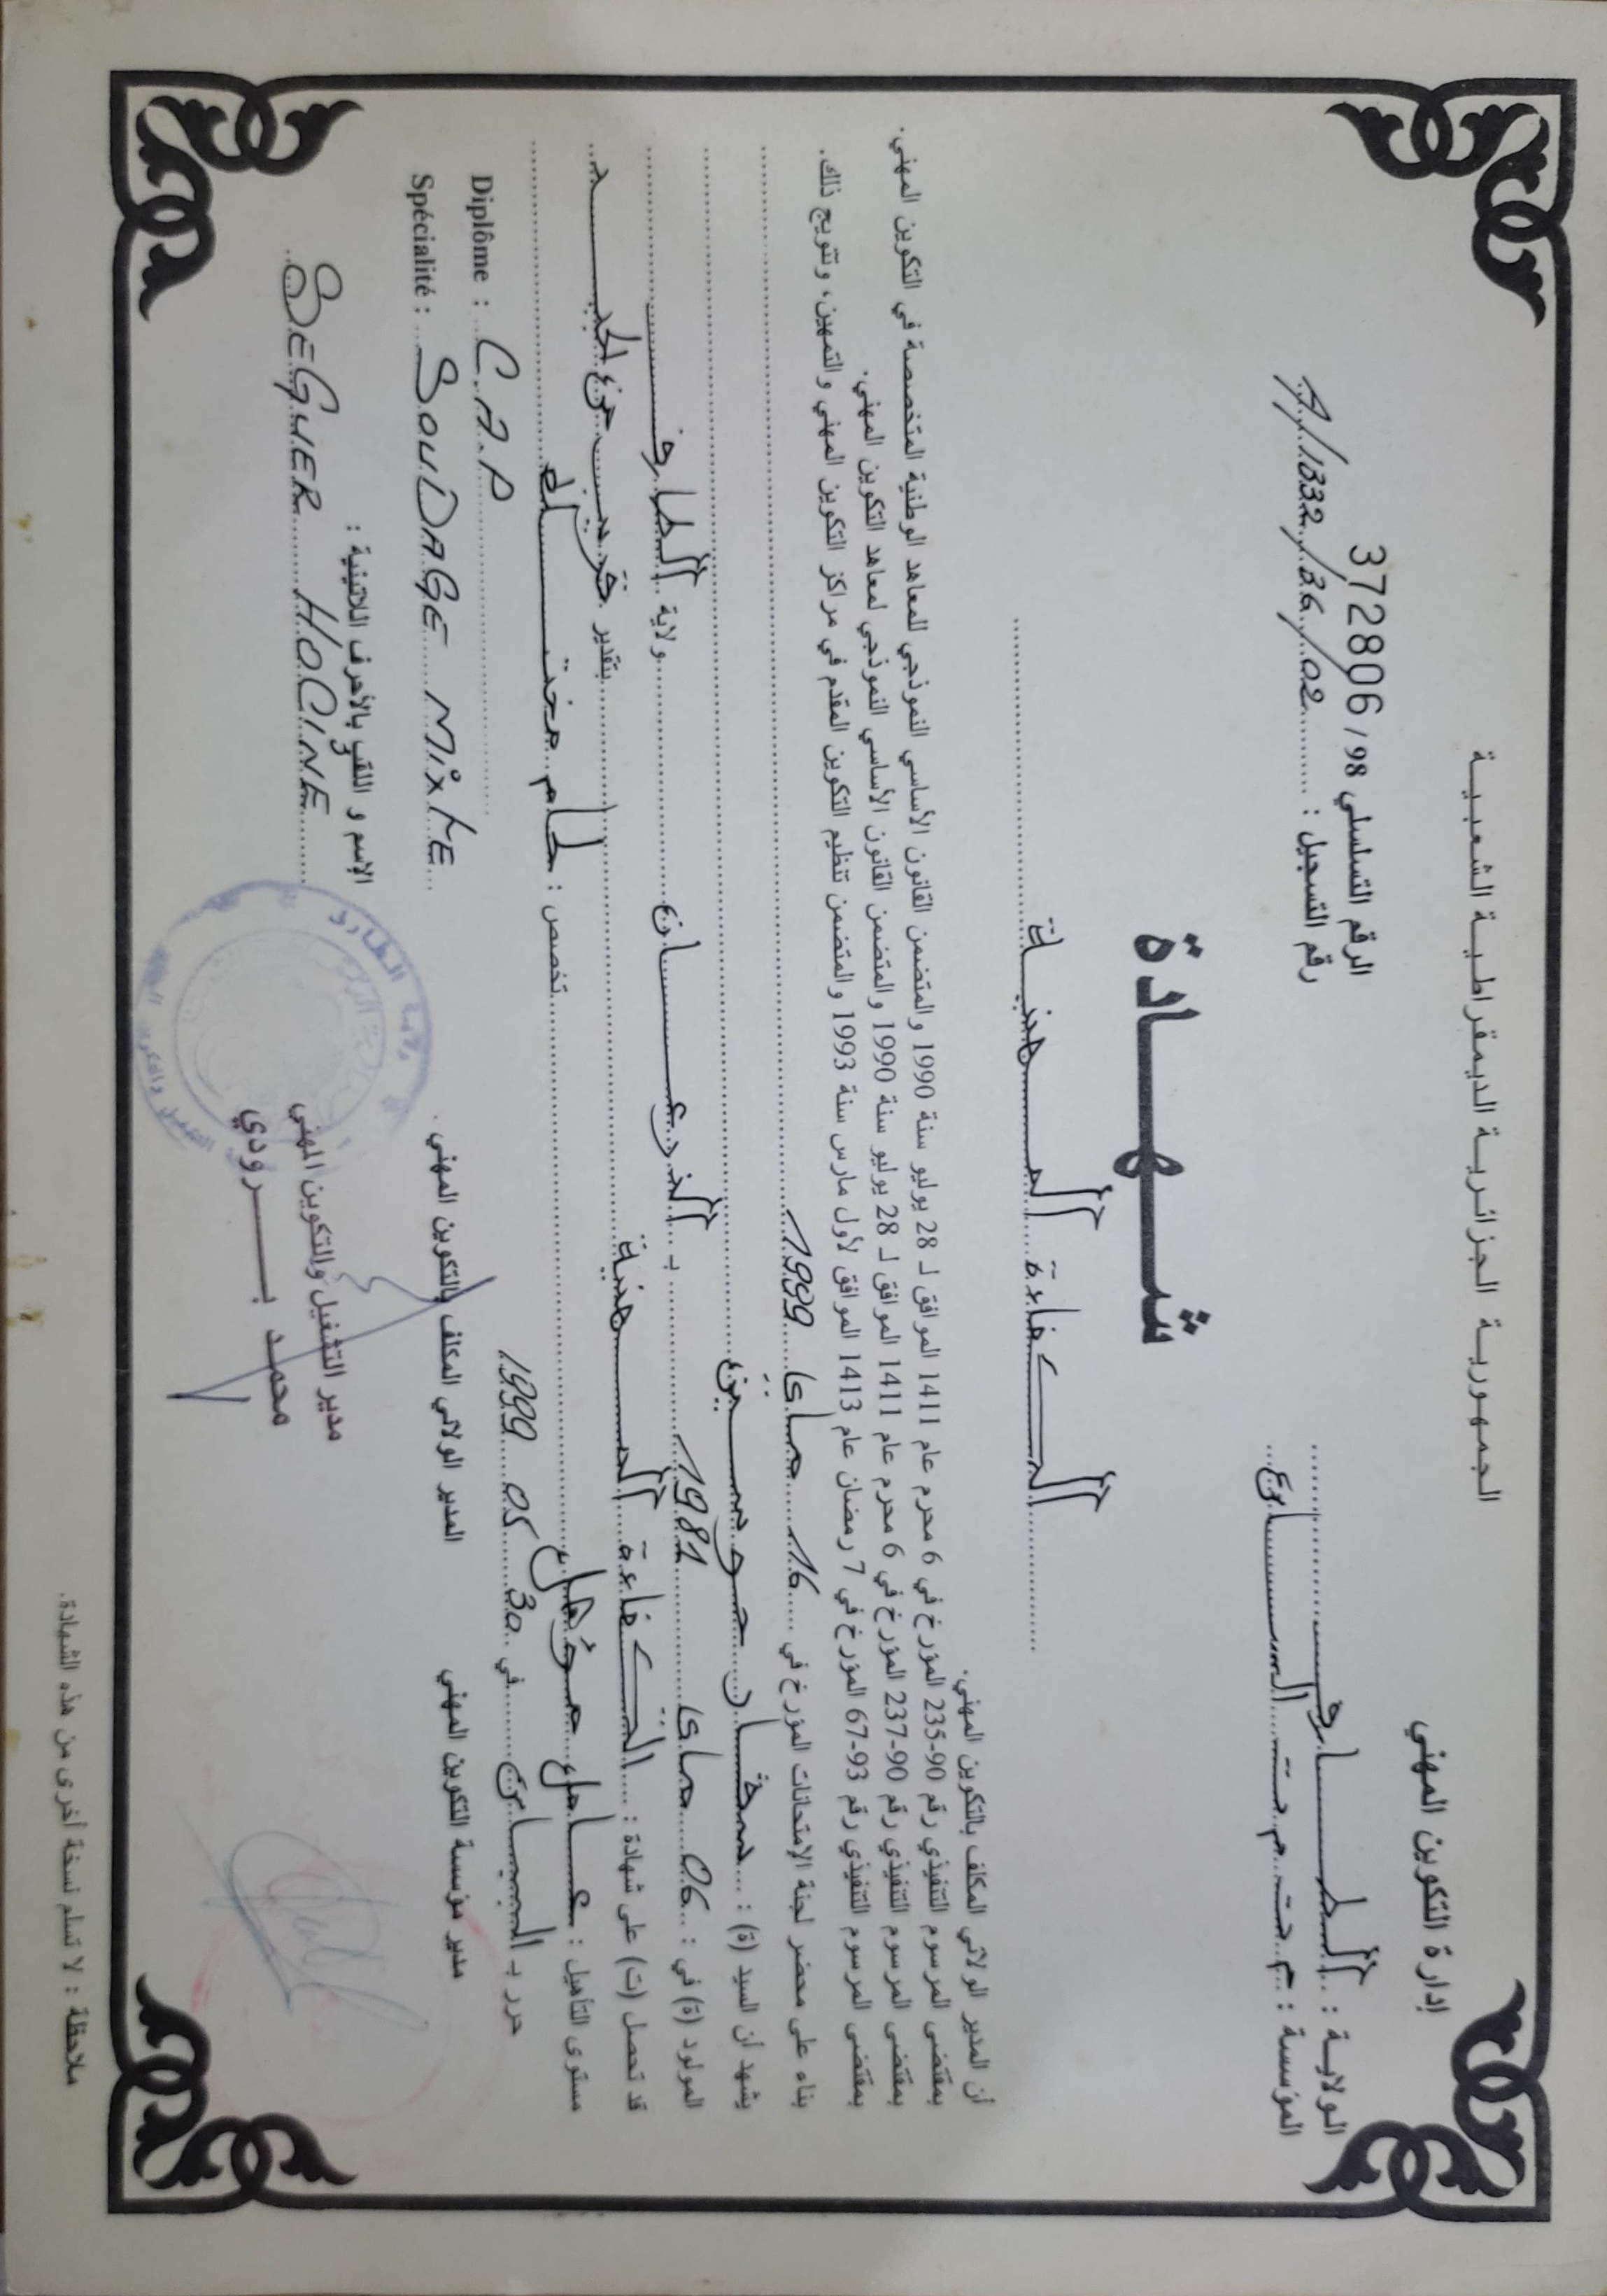 الجمهورية الجزائرية الديمقراطية الشعبية
إدارة التكوين المهني
الولاية : الطارف
المؤسسة : م.ت.م.ت. البسباس
الرقم التسلسلي 98 / 372806
رقم التسجيل : 02/36/1332/A
شهادة
الكفاءة المهنية
أن المدير الولائي المكلف بالتكوين المهني.
بمقتضى المرسوم التنفيذي رقم 90-235 المؤرخ في 6 محرم عام 1411 الموافق لـ 28 يوليو سنة 1990 والمتضمن القانون الأساسي النموذجي للمعاهد الوطنية المتخصصة في التكوين المهني.
بمقتضى المرسوم التنفيذي رقم 90-237 المؤرخ في 6 محرم عام 1411 الموافق لـ 28 يوليو سنة 1990 والمتضمن القانون الأساسي النموذجي لمعاهد التكوين المهني.
بمقتضى المرسوم التنفيذي رقم 93-67 المؤرخ في 7 رمضان عام 1413 الموافق لأول مارس سنة 1993 والمتضمن تنظيم التكوين المقدم في مراكز التكوين المهني والتمهين، وتتويج ذلك.
بناء على محضر لجنة الإمتحانات المؤرخ في 16 ماي 1999
يشهد أن السيد (ة) : سقار حوسين
المولود (ة) في : 06 ماي 1981 بـ الذرعان ولاية الطارف
قد تحصل (ت) على شهادة : الكفاءة المهنية بتقدير قريب من الجيد
مستوى التأهيل : عامل مؤهل تخصص : لحام مختلط
حرر بـ البسباس في 30 05 1999
Diplôme : C.A.P
Spécialité : SOUDAGE MIXTE
مدير مؤسسة التكوين المهني
المدير الولائي المكلف بالتكوين المهني.
الإسم و اللقب بالأحرف اللاتينية :
SEGUER HOCINE
ولاية الطارف
مدير التشغيل والتكوين المهني
محمد برودي
ملاحظة : لا تسلم نسخة أخرى من هذه الشهادة.